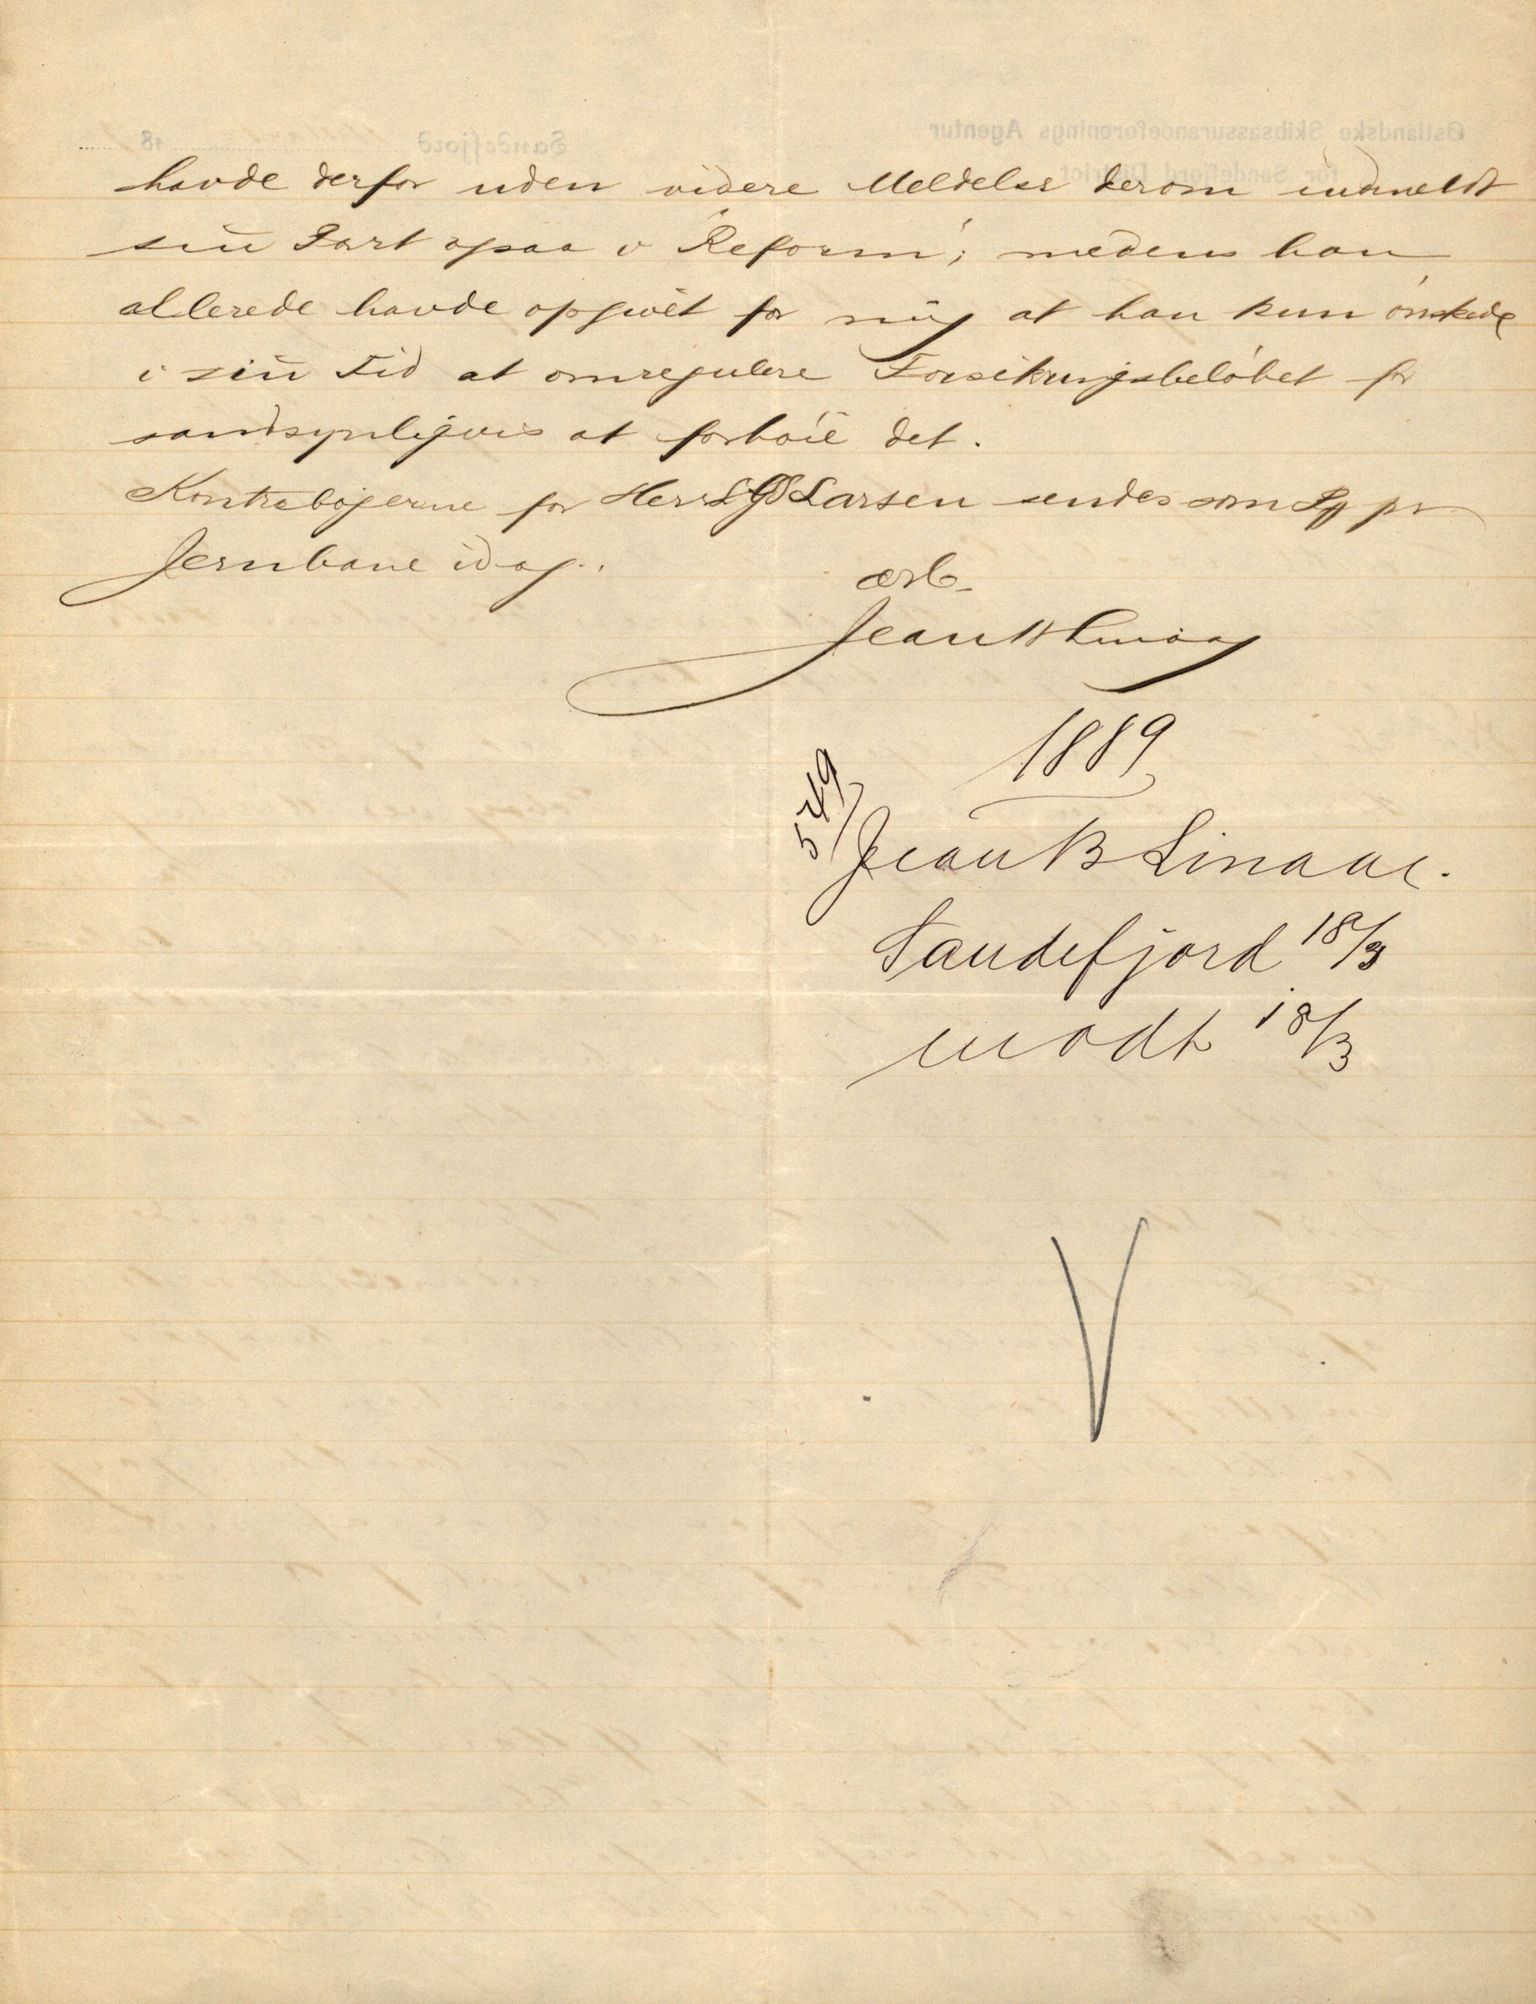 havde derfor uden videre Meldelse derom indmeldt
sin Part ogsaa i "Reform"; medens han
allerede havde opgivet for mig at han kun ønskede
i sin Tid at omregulere Forsikringsbeløbet for
sandsynligvis at forhøie det.
Kontrabøgerne for Herr Larsen sendes som pr
Jernbane idag.
ærb.
Jean B Linaae
1889
549/
Jean B Linaae.
Sandefjord 18/3
modt 18/3
V